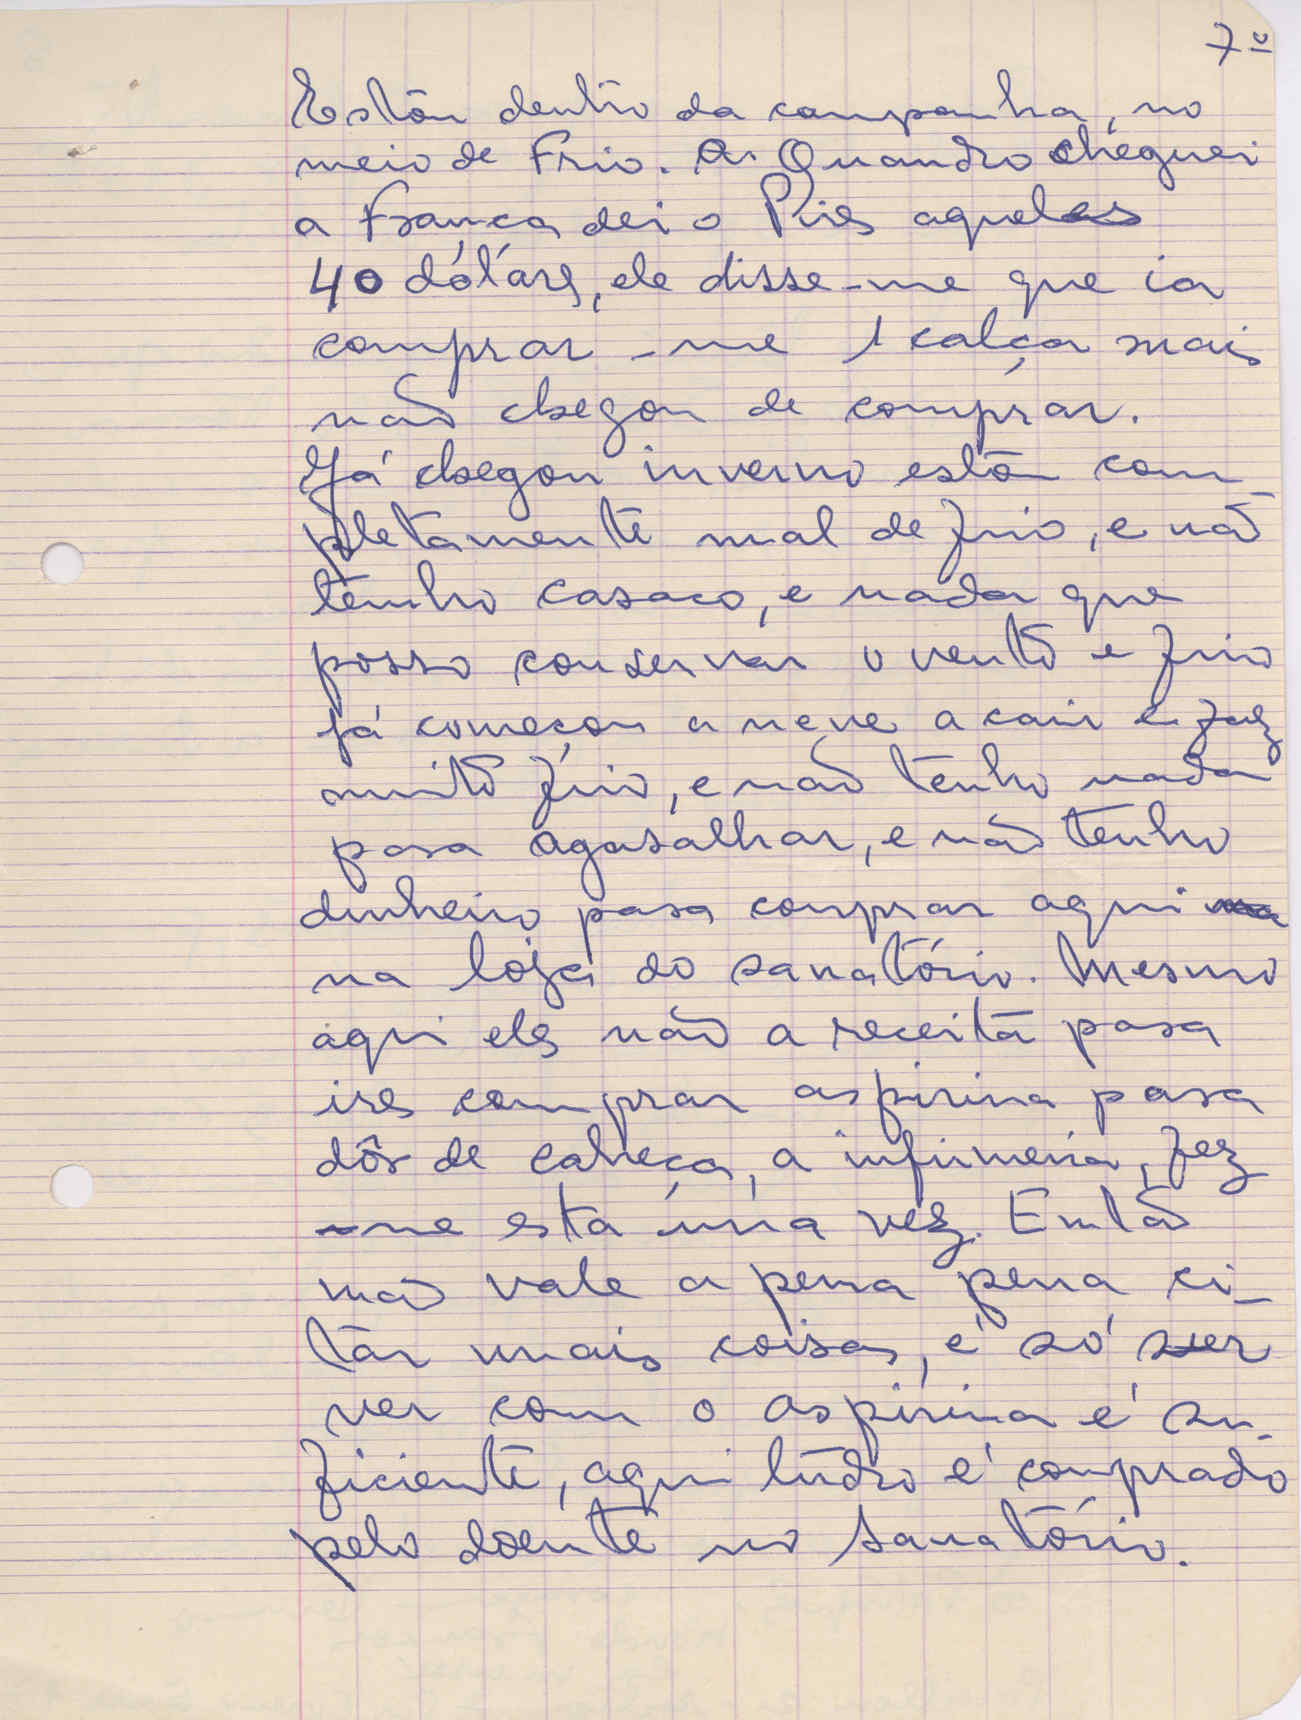 7º
Estôu dentro da companha, no
meio de Frio. Quando cheguei
a França, dei o Pires aqueles
40 dólárs, ele disse-me que ia
comprar-me 1 calça mais
não chegou de comprar.
Já chegou inverno estôu com
pletamente mal de frio, e não
tenho casaco, e nada que
posso conservar o vento e frio
já começou a neve a cair e faz
muito frio, e não tenho nada
para agasalhar, e não tenho
dinheiro para comprar aqui
na loja do sanatório. Mesmo
aqui eles não a receita para
ires comprar aspirina para
dôr de cabeça, a infirmeria, fez
-me esta úna vez. Emtão
não vale a pena pena ci-
tar mais coisas, é só ser
ver com o aspirina é su-
ficiente, aqui túdro é comprado
pelo doente no sanatório.